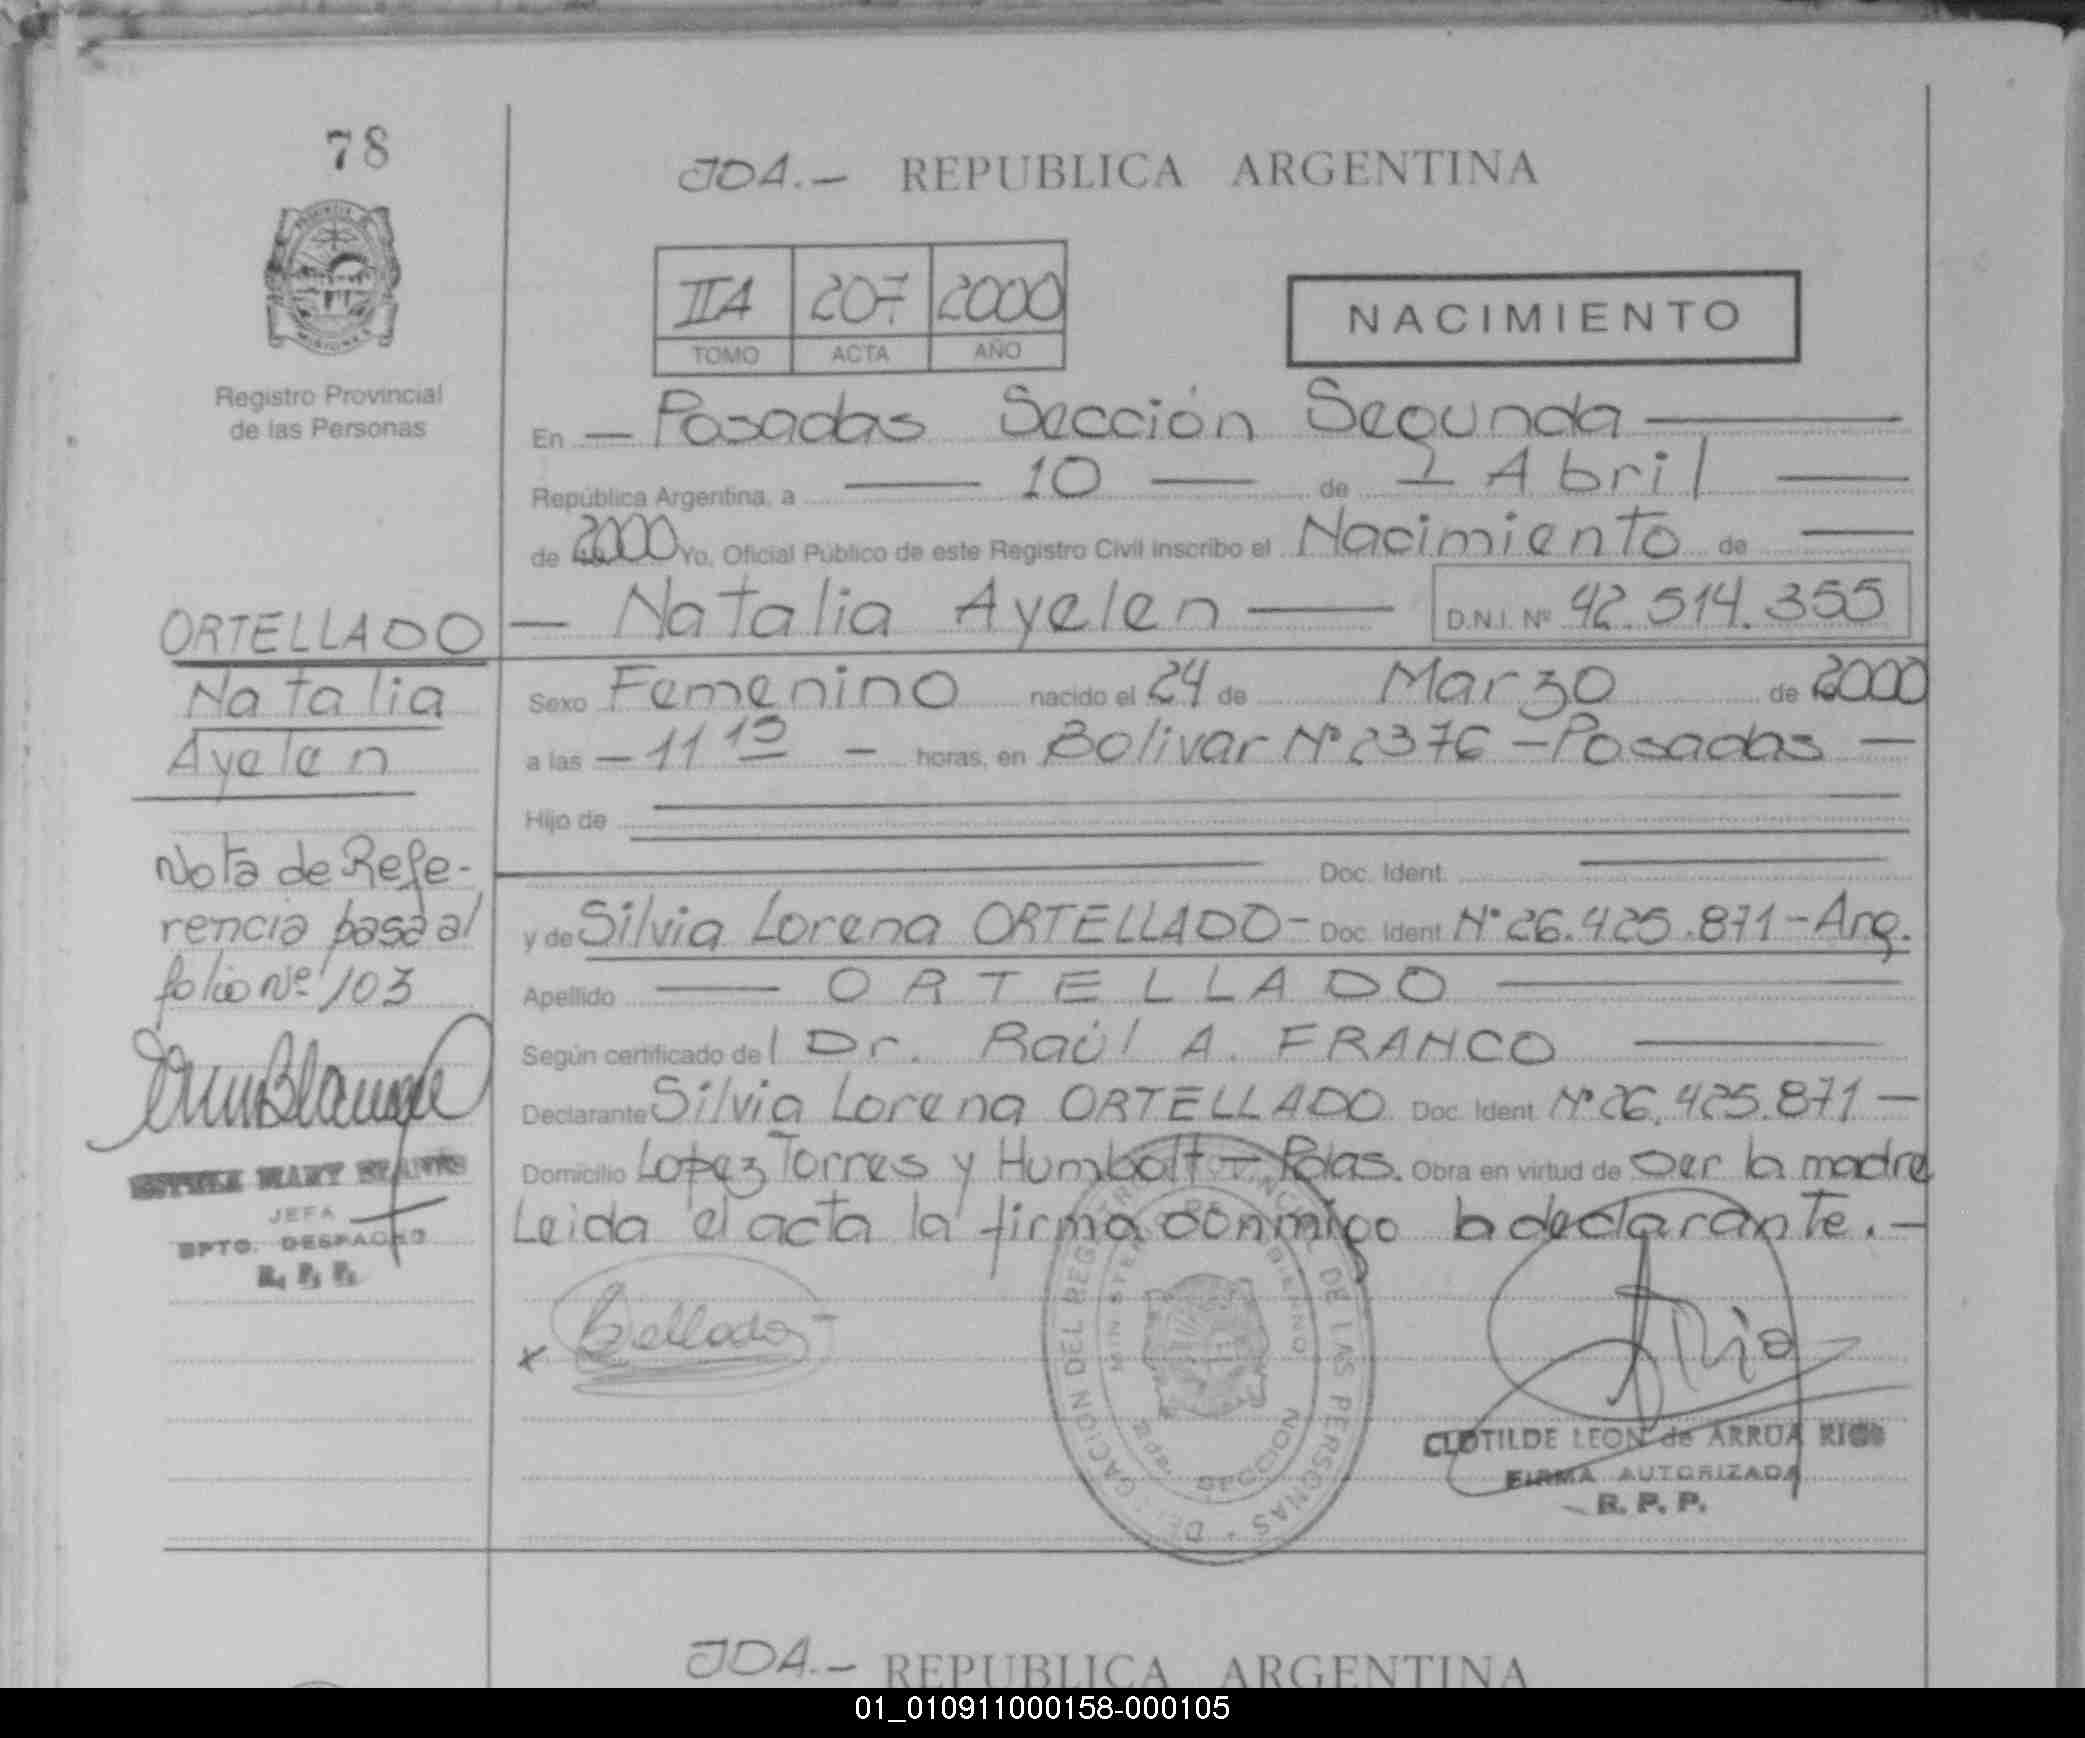 78
JDA.- REPUBLICA ARGENTINA
IIA 207 2000
TOMO ACTA AÑO
NACIMIENTO
Registro Provincial
de las Personas
En — Posadas Sección Segunda —
República Argentina, a — 10 — de — Abril —
de 2000 Yo, Oficial Público de este Registro Civil inscribo el Nacimiento de —
— Natalia Ayelen — D.N.I. Nº 42.514.355
ORTELLADO
Natalia
Ayelen
Sexo Femenino nacido el 24 de Marzo de 2000
a las — 11 15 — horas, en Bolivar Nº 2376 - Posadas —
Hijo de
Doc. Ident.
y de Silvia Lorena ORTELLADO - Doc. Ident Nº 26.425.871 - Arg.
Apellido — ORTELLADO —
Según certificado del Dr. Raúl A. FRANCO —
Declarante Silvia Lorena ORTELLADO Doc. Ident Nº 26.425.871 —
Domicilio Lopez Torres y Humbolt - Pdas. Obra en virtud de ser la madre
Leida el acta la firma conmigo la declarante. -
Nota de Refe-
rencia pasa al
folio Nº 103
MARY
JEFA
DPTO. DESPACHO
R. P. P.
x
DELEGACION DEL REGISTRO PROVINCIAL DE LAS PERSONAS
MINISTERIO DE GOBIERNO
2da. SECCION
CLOTILDE LEON de ARRUA RIOS
FIRMA AUTORIZADA
R. P. P.
JDA.- REPUBLICA ARGENTINA
01_010911000158-000105